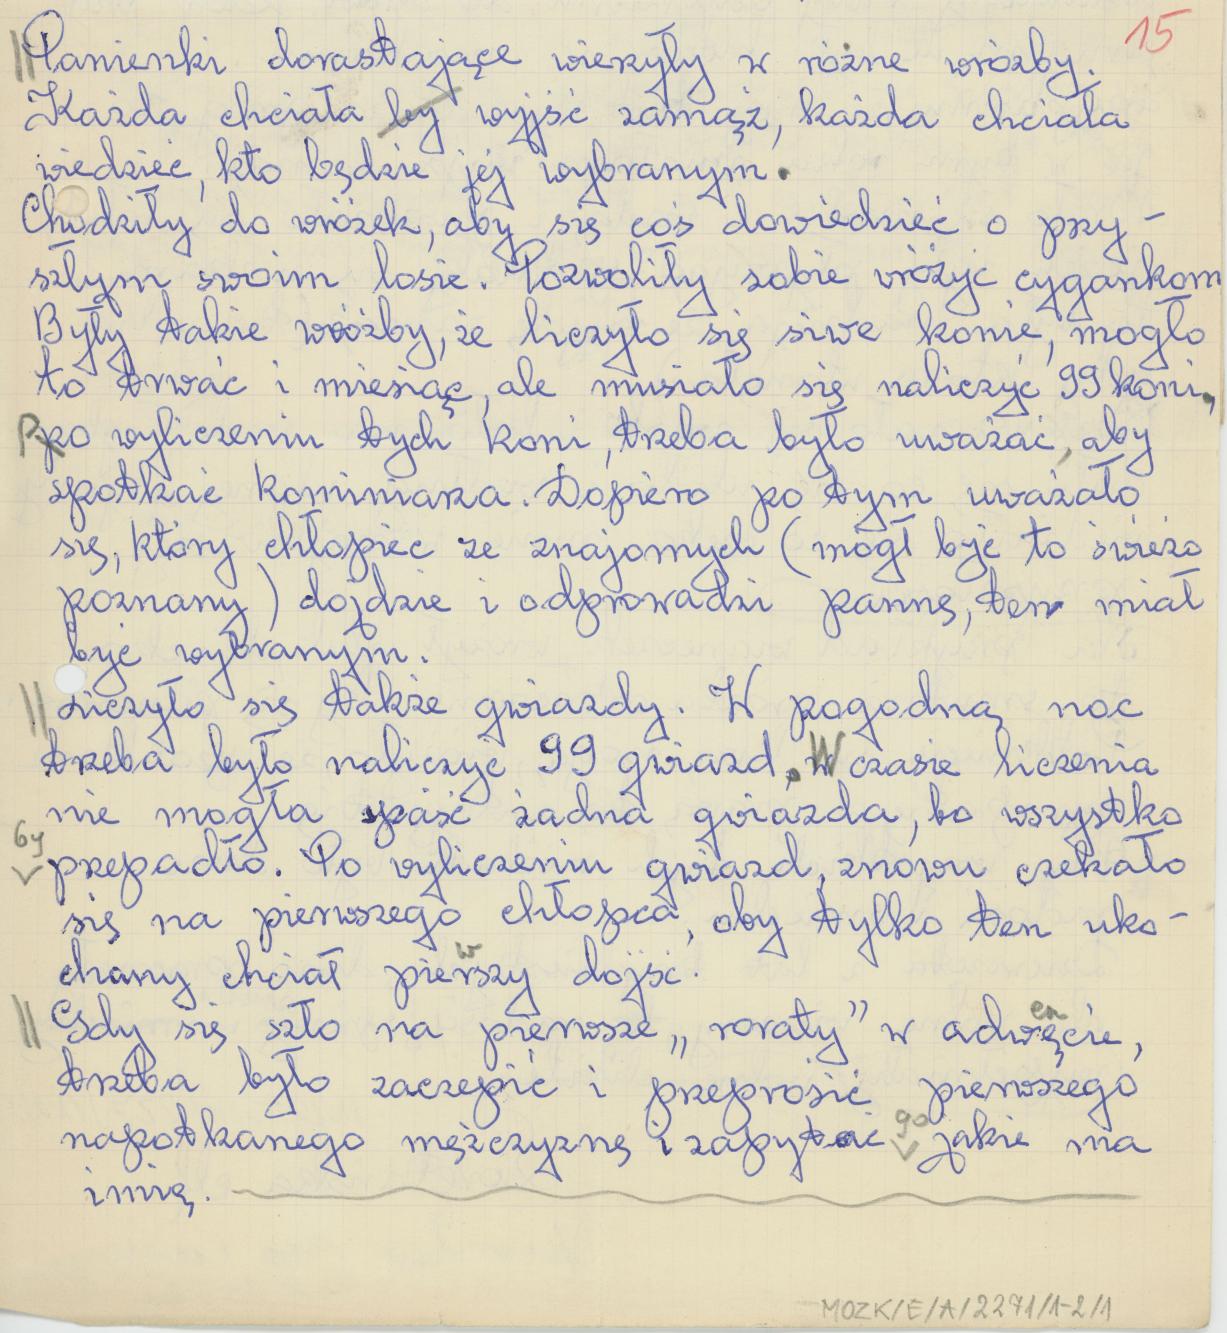 15
Panienki dorastające wierzyły w różne wróżby.
Każda chciała by wyjść zamąż, każda chciała
wiedzieć, kto będzie jej wybranym.
Chodziły do wróżek, aby się coś dowiedzieć o przy-
szłym swoim losie. Pozwoliły sobie wróżyć cygankom
Były takie wróżby, że liczyło się siwe konie, mogło
to trwać i miesiąc, ale musiało się naliczyć 99 koni.
Po wyliczeniu tych koni, trzeba było uważać, aby
spotkać kominiarza. Dopiero po tym uważało
się, który chłopiec ze znajomych (mógł być to świeżo
poznany) dojdzie i odprowadzi pannę, ten miał
być wybranym.
Liczyło się także gwiazdy. W pogodną noc
trzeba było naliczyć 99 gwiazd. W czasie liczenia
nie mogła spaść żadna gwiazda, bo wszystko
by
przepadło. Po wyliczeniu gwiazd, znowu czekało
się na pierwszego chłopca, oby tylko ten uko-
chany chciał pierwszy dojść.
Gdy się szło na pierwsze „roraty” w adwęcie,
en
trzeba było zaczepić i przeprosić pierwszego
napotkanego mężczyznę i zapytać go jakie ma
imię.
MOZK/E/A/2271/1-2/1